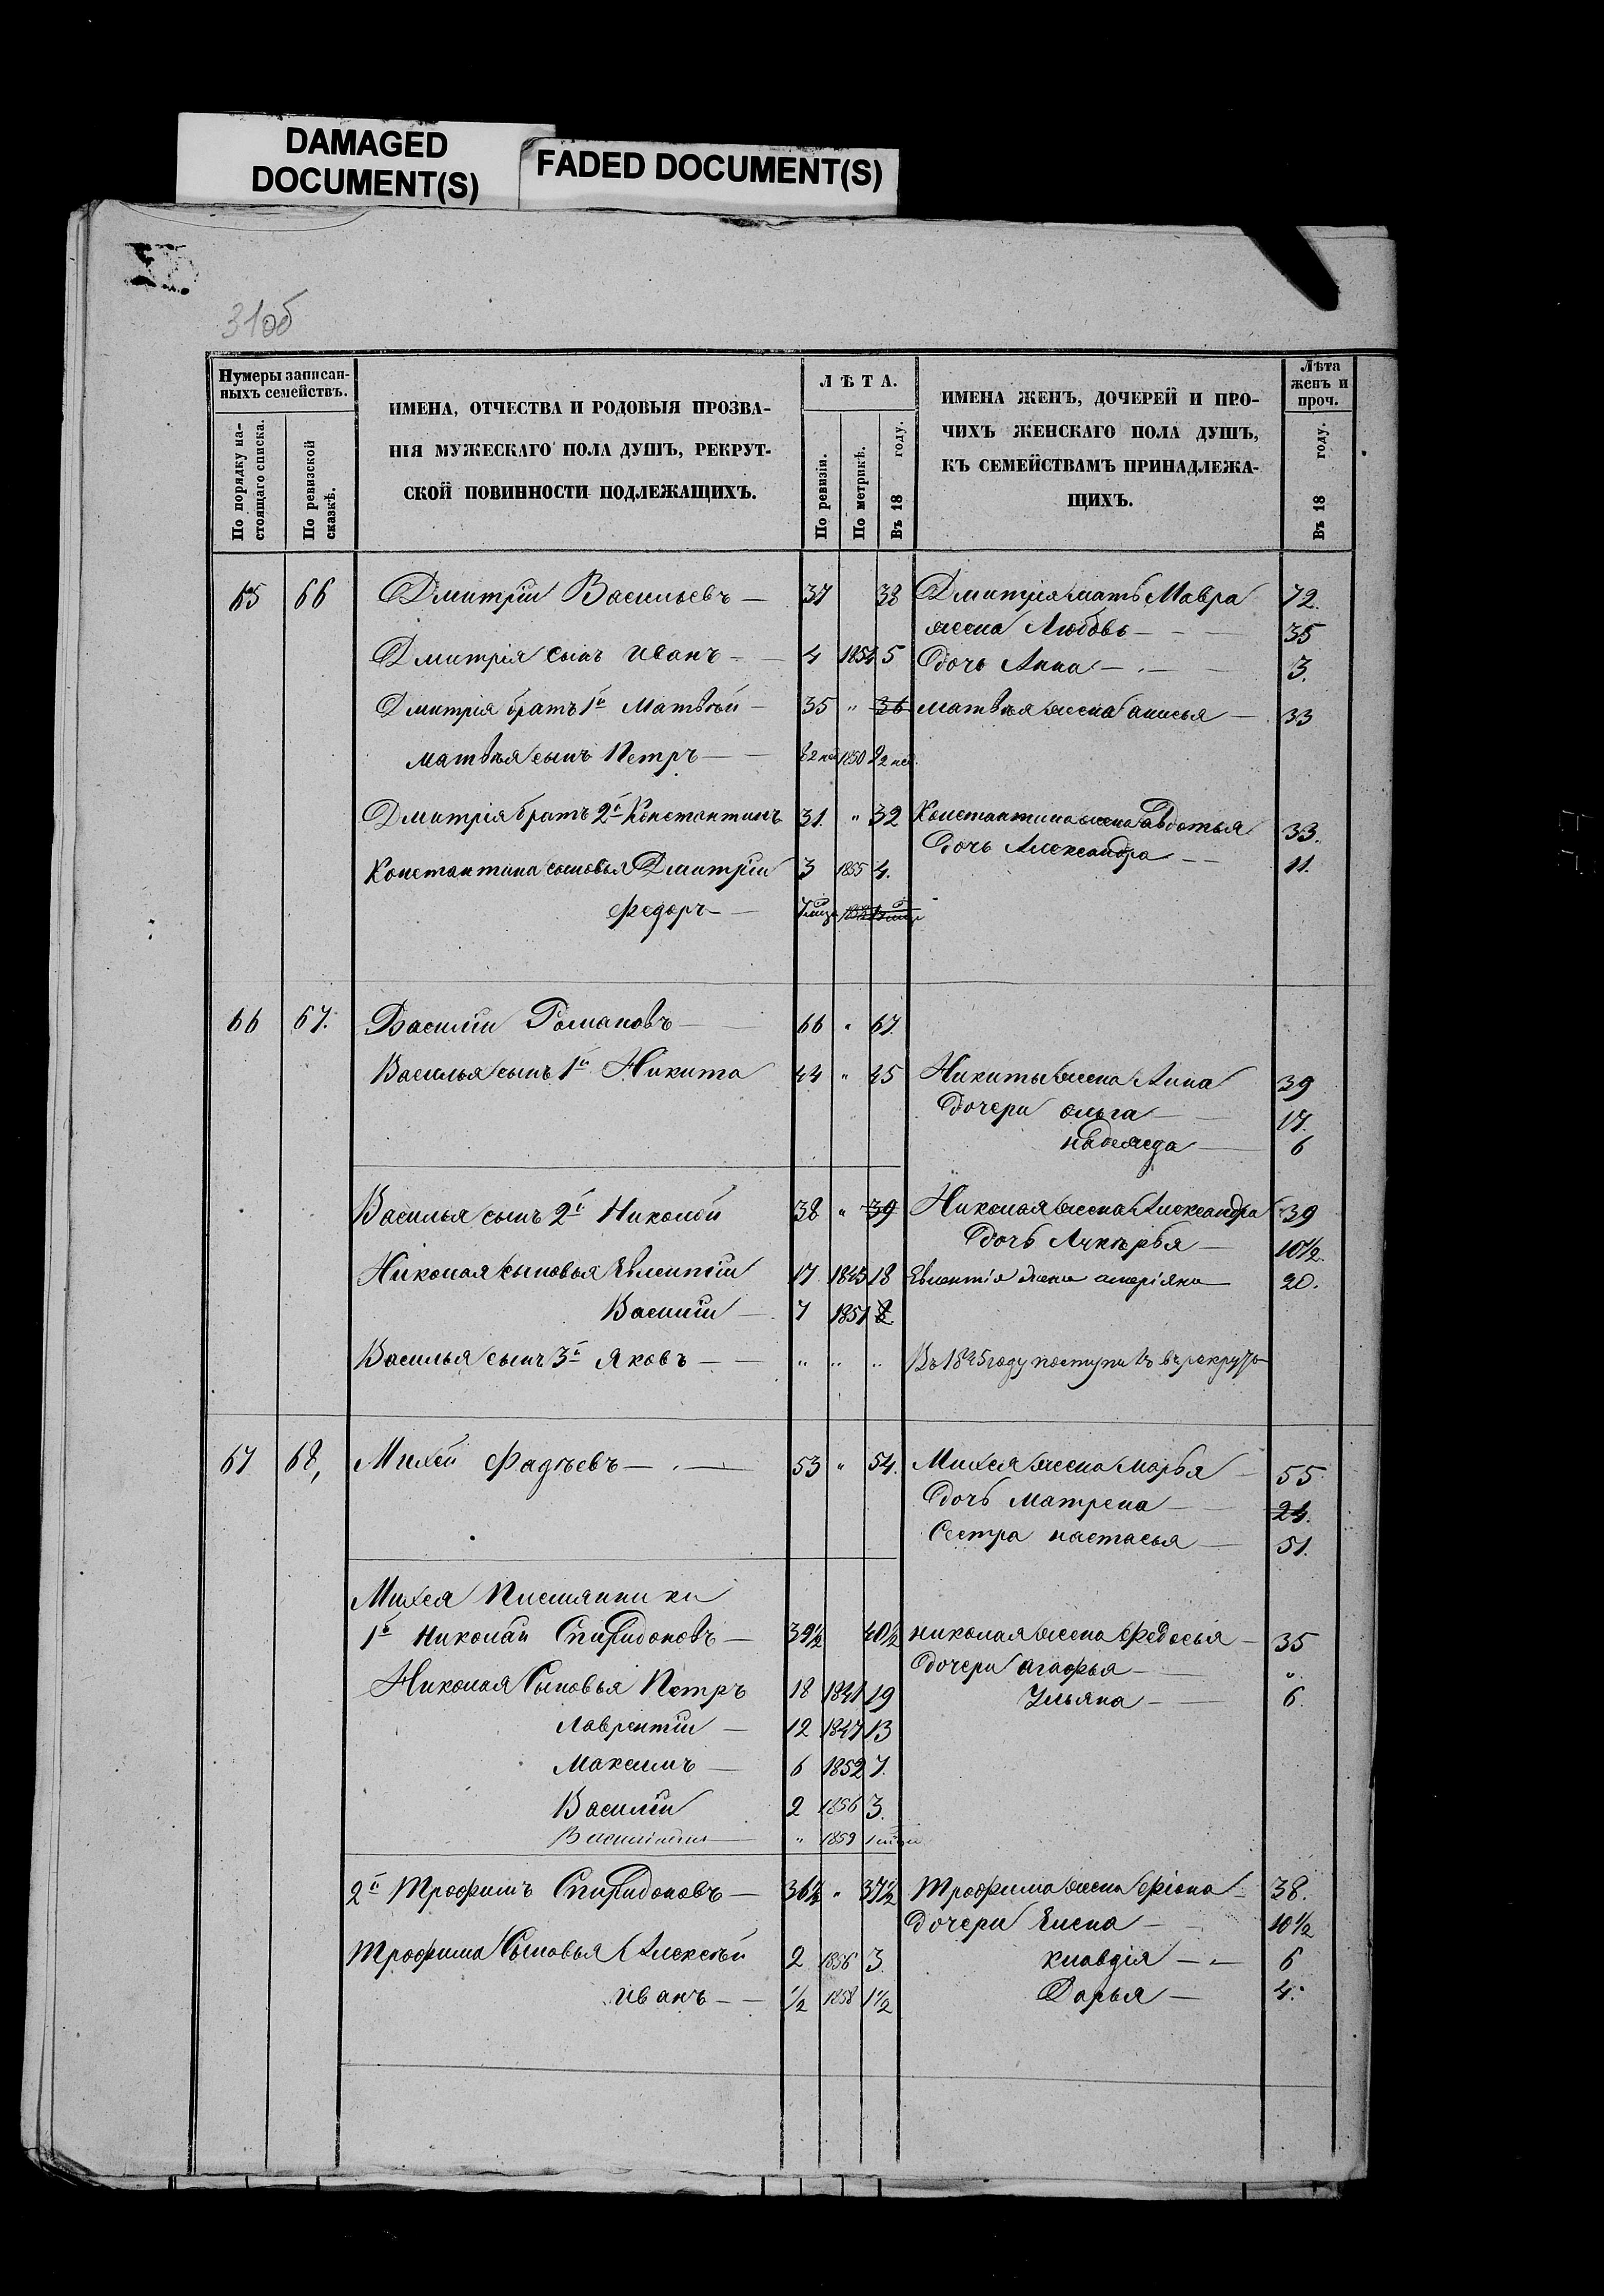 DAMAGED
DOCUMENT(S)
FADED DOCUMENT(S)
31об
Нумеры записан-
ныхъ семействъ.
По порядку на-
стоящаго списка.
По ревизской
сказкѣ.
ИМЕНА, ОТЧЕСТВА И РОДОВЫЯ ПРОЗВА-
НІЯ МУЖЕСКАГО ПОЛА ДУШЪ, РЕКРУТ-
СКОЙ ПОВИННОСТИ ПОДЛЕЖАЩИХЪ.
ЛѢТА.
По ревизіи.
По метрикѣ.
Въ 18 году.
ИМЕНА ЖЕНЪ, ДОЧЕРЕЙ И ПРО-
ЧИХЪ ЖЕНСКАГО ПОЛА ДУШЪ,
КЪ СЕМЕЙСТВАМЪ ПРИНАДЛЕЖА-
ЩИХЪ.
Лѣта
женъ и
проч.
Въ 18 году.
65 66 Дмитрій Васильевъ — 37 38 Дмитрія мать Мавра 72.
жена Любовь — 35
Дмитрія сынъ Иванъ — 4 1854 5 дочь Анна — 3.
Дмитрія братъ 1й Матвѣй — 35 " 36 Матвѣя жена Анисья — 33
Матвѣя сынъ Петръ — 1850
Дмитрія братъ 2й Константинъ 31. " 32 Константина жена Авдотья 33.
дочь Александра — 11.
Константина сыновья Дмитрій 3 1855 4.
Федоръ —
66 67. Василій Романовъ — 66 " 67.
Василья сынъ 1й Никита 44 " 45 Никиты жена Анна 39
дочери Ольга — 17.
Надежда — 6
Василья сынъ 2й Николай 38 " 39 Николая жена Александра 39
дочь Лукѣрья — 10½.
Николая сыновья Евлентій 17 1845 18 Евлентія жена 20.
Василій — 7 1851 8
Василья сынъ 3й Яковъ — " " " Въ 1845 году поступилъ въ рекруты
67 68, Михей Фадѣевъ — 53 " 54. Михея жена Марья — 55
дочь Матрена — 24.
Сестра Настасья — 51.
Михея Племянники
1й Николай Спиридоновъ — 39½ 40½ Николая жена Федосья — 35
дочери Агафья — "
Николая Сыновья Петръ 18 1841 19 Ульяна — 6.
Лаврентій — 12 1847 13
Максимъ — 6 1852 7.
Василій 2 1856 3.
" 1859
2й Трофимъ Спиридоновъ — 36½ " 37½ Трофима жена Фіона — 38.
дочери Елена — 10½
Трофима Сыновья Алексѣй 2 1856 3. Клавдія — 6
Иванъ — ½ 1858 1½ Дарья — 4.